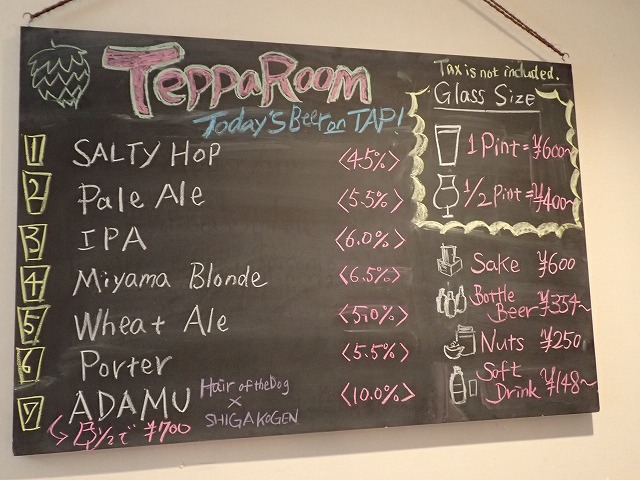 TeppaRoom
Today's Beer on TAP!
1 SALTY HOP <4.5%>
2 Pale Ale <5.5%>
3 IPA <6.0%>
4 Miyama Blonde <6.5%>
5 Wheat Ale <5.0%>
6 Porter <5.5%>
7 ADAMU Hair of the Dog × SHIGAKOGEN <10.0%>
1/2で ¥700
Tax is not included.
Glass Size
1 Pint = ¥600~
1/2 Pint = ¥400~
Sake ¥600
Bottle
Beer ¥334~
Nuts ¥250
Soft
Drink ¥148~